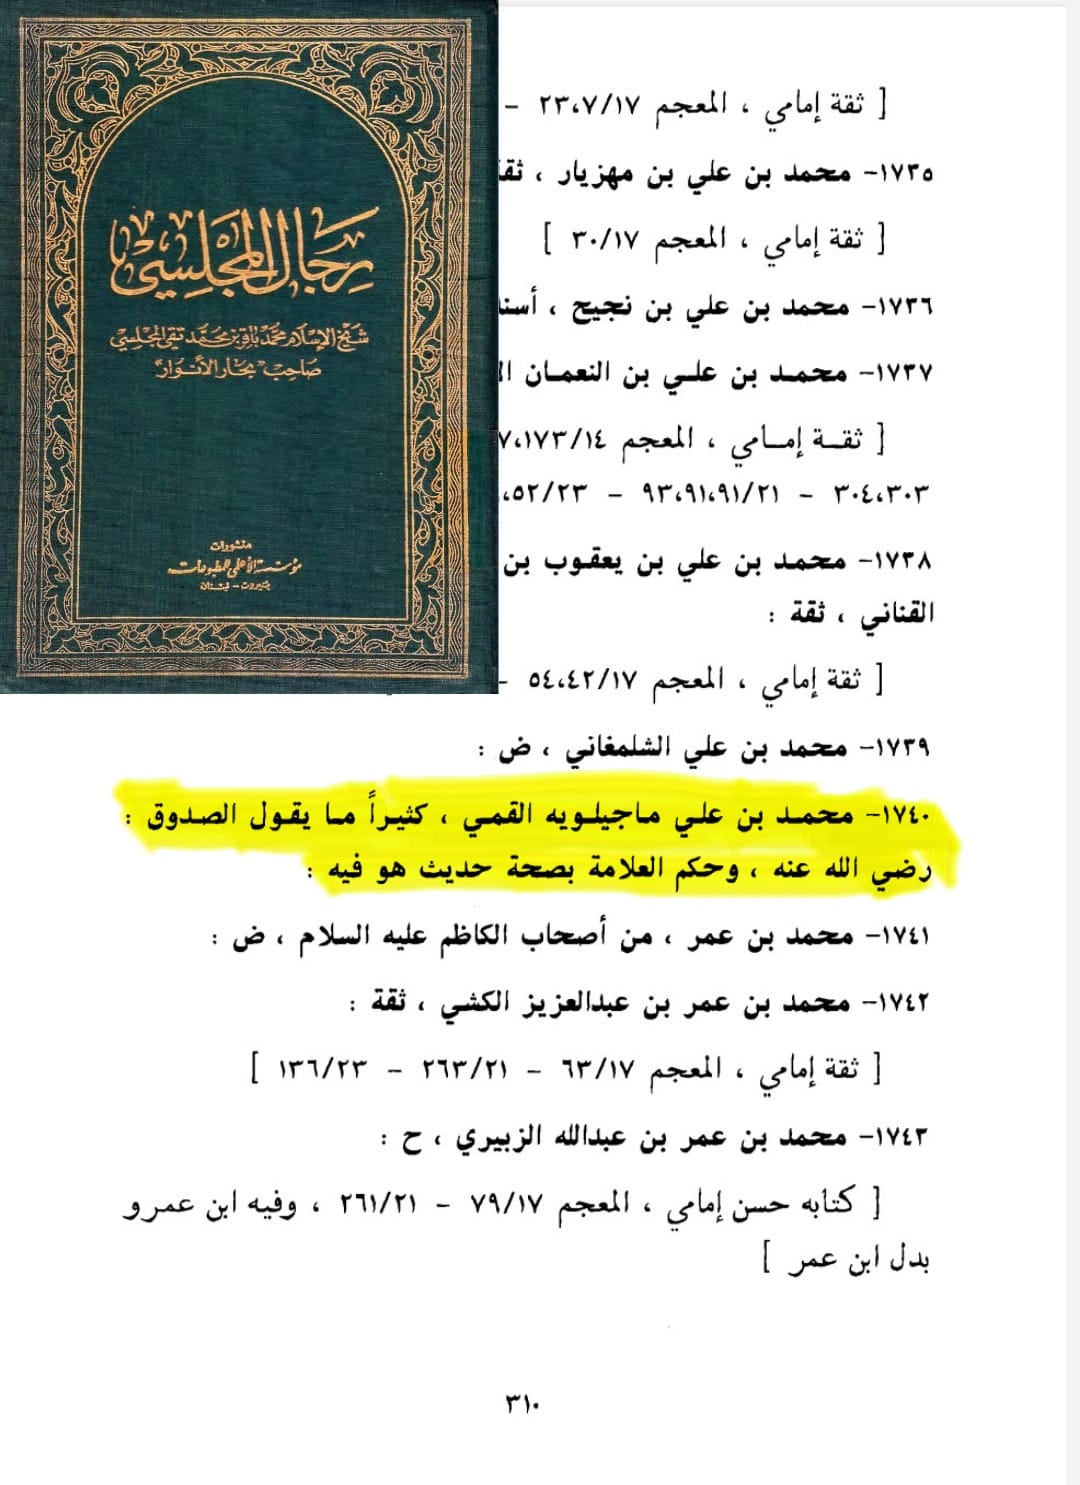 رجال المجلسي
شيخ الإسلام محمد باقر بن محمد تقي المجلسي
صاحب "بحار الأنوار"
منشورات
مؤسسة الأعلمي للمطبوعات
بيروت - لبنان
[ ثقة إمامي ، المعجم ٢٣،٧/١٧ -
١٧٣٥- محمد بن علي بن مهزيار ، ثقة
[ ثقة إمامي ، المعجم ٣٠/١٧ ]
١٧٣٦- محمد بن علي بن نجيح ،
١٧٣٧- محمـد بن علـي بن النعمـان
[ ثقــة إمــامي ، المعجم ١٧٣/١٤،٧
٣٠٤،٣٠٣ - ٩٣،٩١،٩١/٢١ - ٥٢/٢٣،
١٧٣٨- محمد بن علي بن يعقوب بن
القناني ، ثقة :
[ ثقة إمامي ، المعجم ٥٤،٤٢/١٧ -
١٧٣٩- محمد بن علي الشلمغاني ، ض :
١٧٤٠- محمـد بن علـي ماجيلـويه القمـي ، كثيـراً مـا يقـول الصـدوق :
رضي الله عنه ، وحكم العلامة بصحة حديث هو فيه :
١٧٤١- محمد بن عمر ، من أصحاب الكاظم عليه السلام ، ض :
١٧٤٢- محمد بن عمر بن عبدالعزيز الكشي ، ثقة :
[ ثقة إمامي ، المعجم ٦٣/١٧ - ٢٦٣/٢١ - ١٣٦/٢٣ ]
١٧٤٣- محمد بن عمر بن عبدالله الزبيري ، ح :
[ كتابه حسن إمامي ، المعجم ٧٩/١٧ - ٢٦١/٢١ ، وفيه ابن عمرو
بدل ابن عمر ]
٣١٠